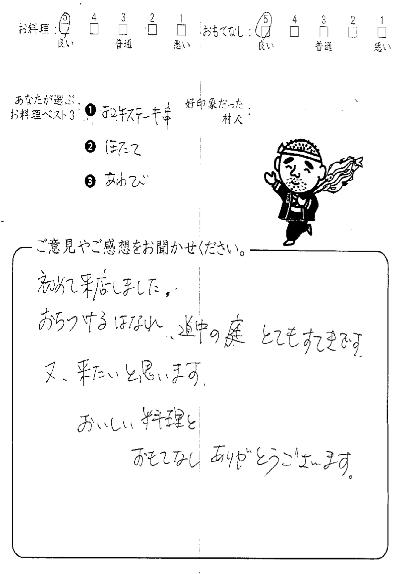 お料理： 5 4 3 2 1 おもてなし： 5 4 3 2 1
良い 普通 悪い 良い 普通 悪い
あなたが選ぶ 好印象だった
お料理ベスト3： 村人：
❶ お牛ステーキ串
❷ ほたて
❸ あわび
ご意見やご感想をお聞かせください。
初めて来店しました。
おちつけるはなれ、道中の庭 とてもすてきです
又、来たいと思います。
おいしい料理と
おもてなしありがとうございます。